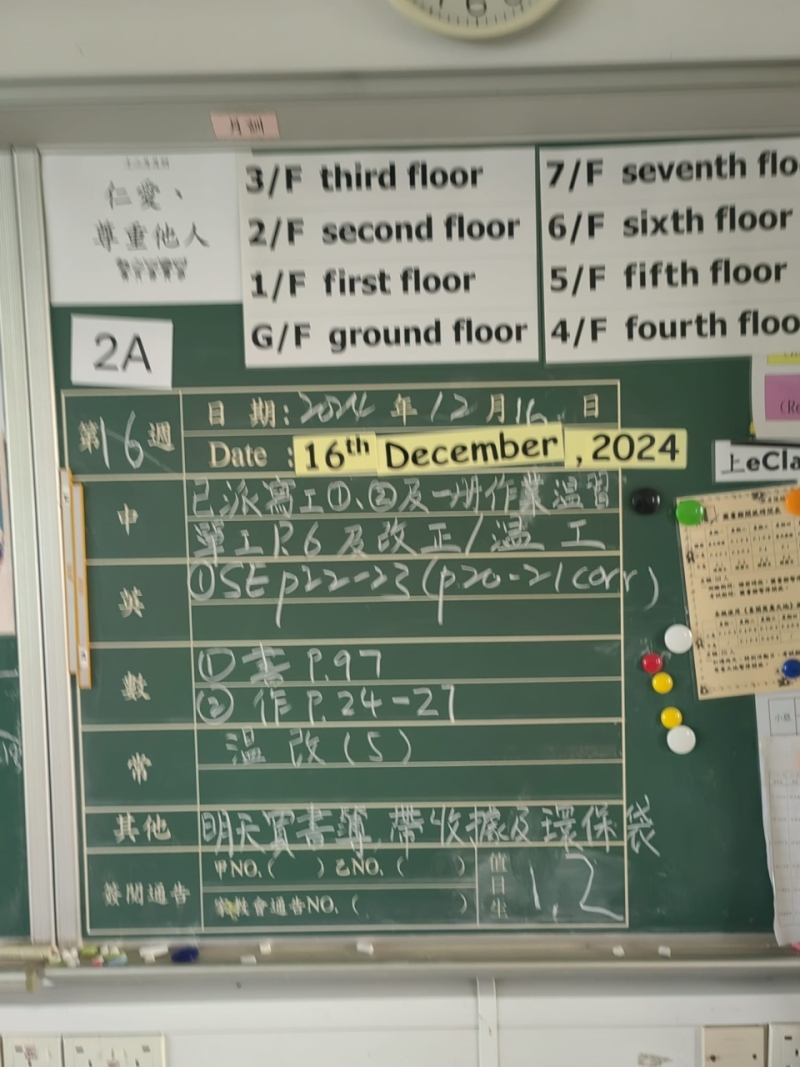 6
月訓
仁愛、
尊重他人
3/F third floor
2/F second floor
1/F first floor
G/F ground floor
7/F seventh flo
6/F sixth floor
5/F fifth floor
4/F fourth floo
2A
第16週
日期:2024年12月16日
Date : 16th December , 2024
上eCla
(Re
中
已派寫工①、②及一冊作業溫習
單工P.6及改正/溫工
英
①SE p22-23 (p.20-21 corr)
數
① 書 P.97
② 作 P.24-27
常
溫 改 (5)
其他
明天買書簿,帶收據及環保袋
簽閱通告
甲NO.( ) 乙NO.( )
家教會通告NO.( )
值日生
1,2